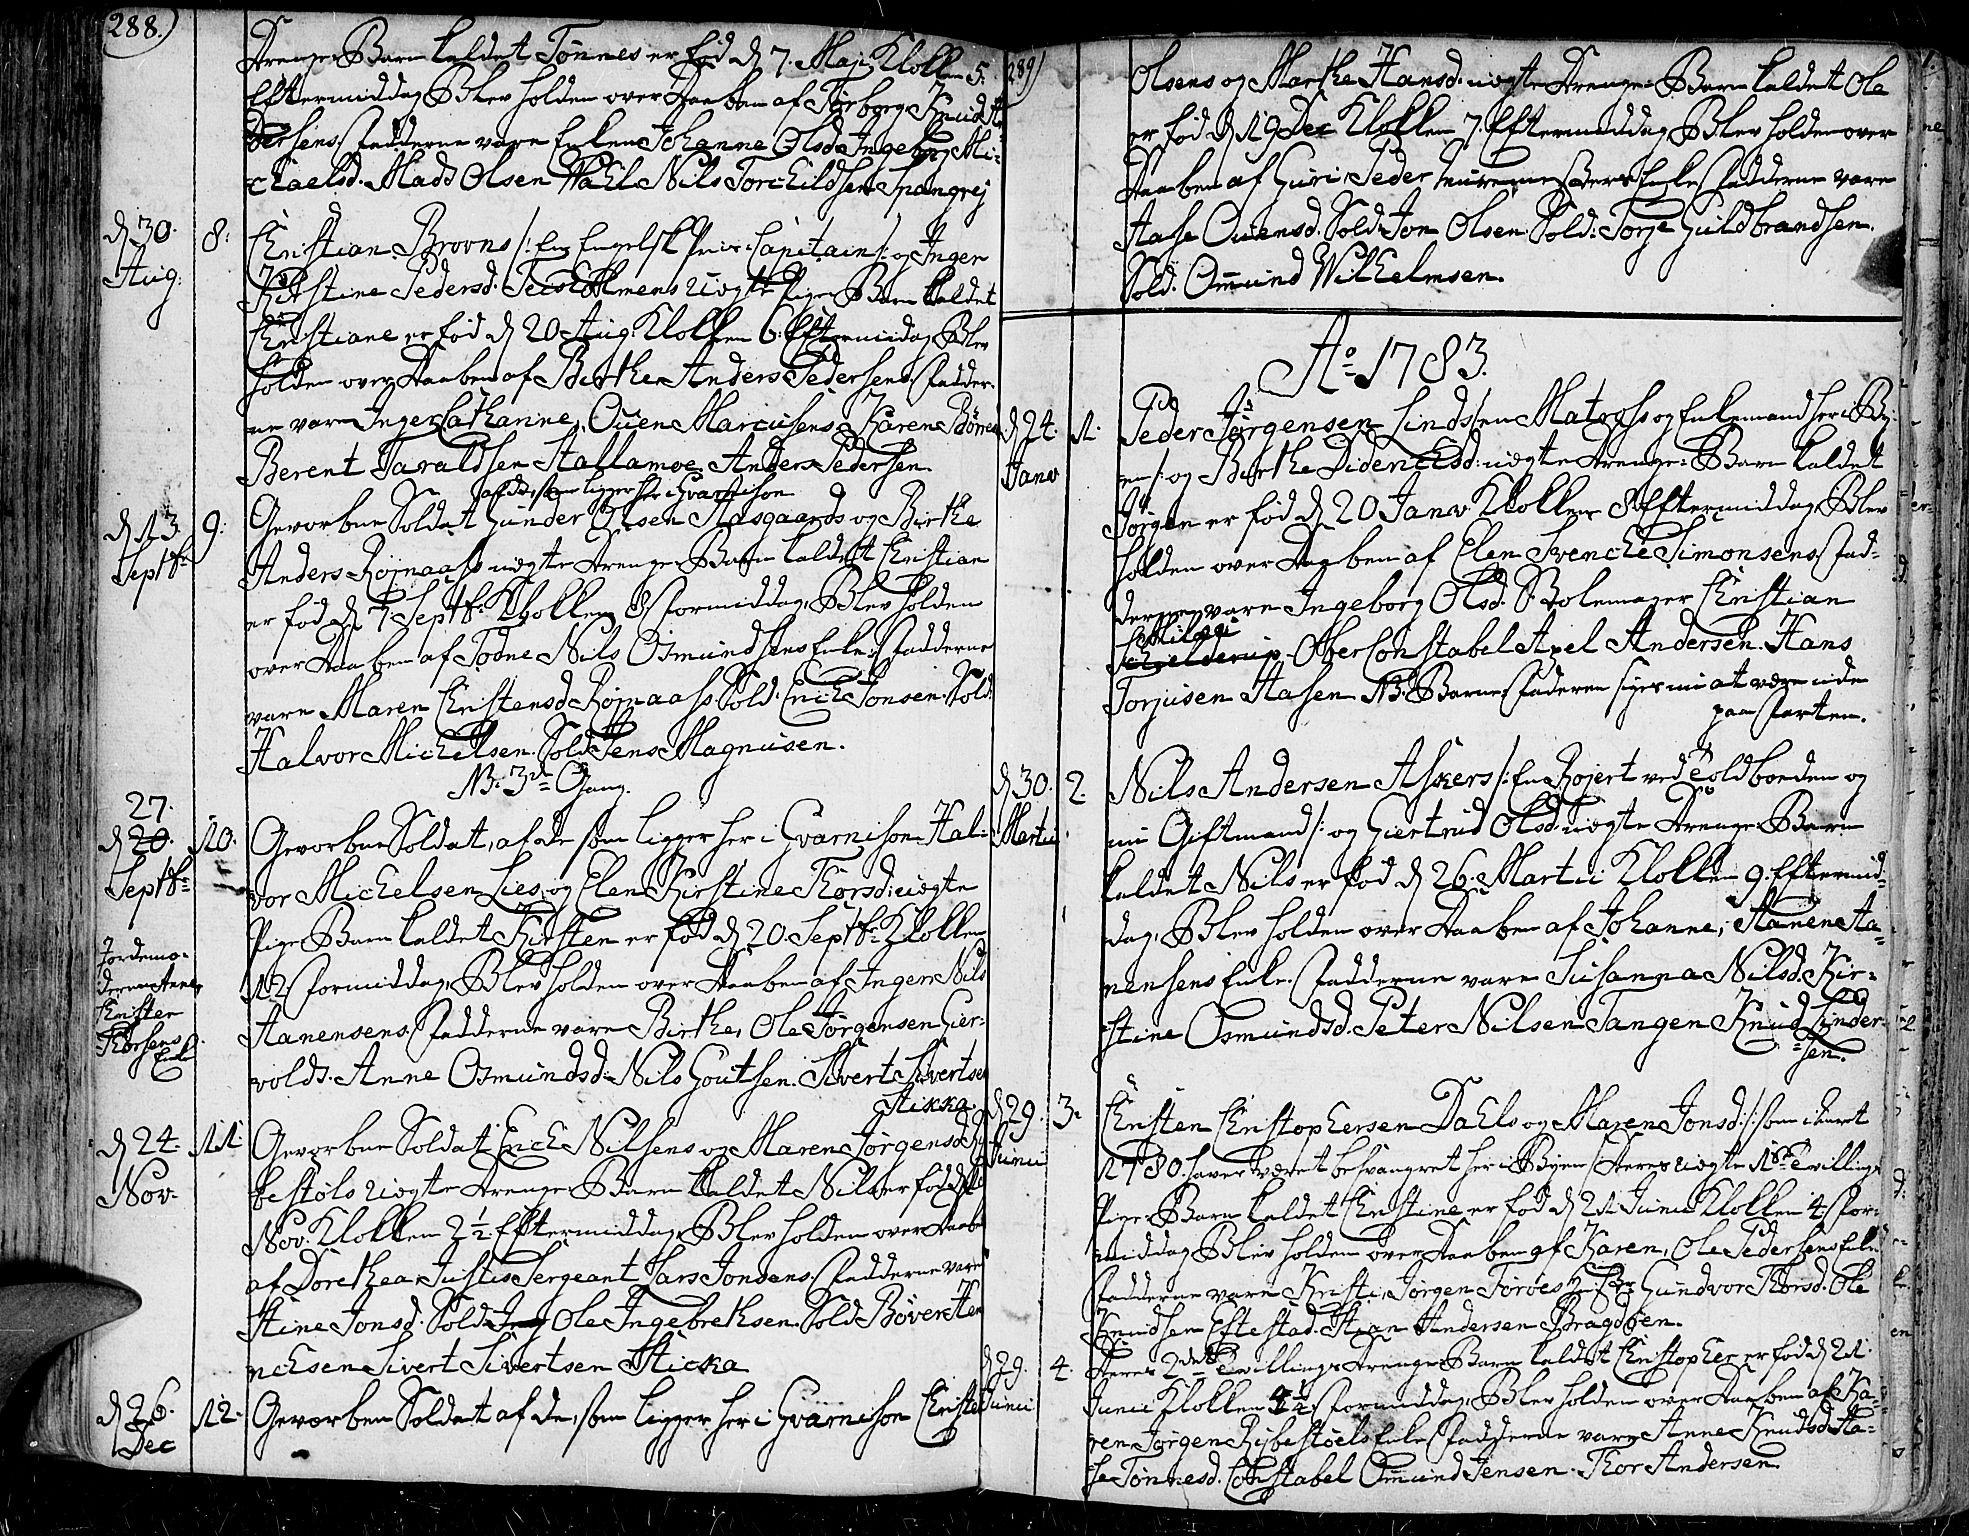 288.)
Drenge Barn kaldet Tønnes er fød d 7. Maji Klokken 5.
Eftermiddag, Blev holden over Daaben af Torborg, Knud An
dersens. Fadderne vare Enken Johanne Olsd. Ingeborg Mi-
chaelsd. Mads Olsen Wahl Nils Torchildsen Spangrej
d 30. Aug: 8.
Christian Brovns /: En Engelsk Capitain :/ og Inger
Kirstine Pedersd. uægte Pige Barn kaldet
Christiane er fød d 20 Aug: Klokken 6. Eftermiddag, Blev
holden over Daaben af Birthe, Anders Pedersens. Fadder-
ne vare Inger Cathrine, Ouen Marcusens, Karen
Berent Taraldsen Anders Pedersen.
af de, som ligger her i Gvarnison
d 13 Septbr 9.
Gevorben Soldat Gunder Olsen Aasgaards og Birthe
Anders Røjnaass uægte Drenge Barn kaldet Christian
er fød d 7 Septbr: Klokken 8 Formiddag, Blev holden
over Daaben af Todne Nils Osmundsens Enke. Fadderne
vare Maren Christensd Røjnaass. Sold. Erich Jonsen. Sold.
Halvor Michelsen. Sold. Jens Magnusen.
NB. 3de Gang.
27.
d 20. Septbr 10.
Gevorben Soldat, af de som ligger her i Gvarnison Hal-
vor Michelsen Lies og Elen Kirstine Thorsd: uægte
Pige Barn kaldet Kirsten er fød d 20 Septbr Klokken
12. Formiddag, Blev holden over Daaben af Inger Nils
Aanensens. Fadderne vare Birthe, Ole Jørgensen Gier-
volds. Anne Osmundsd. Nils Goutsen. Sivert Sivertsen
Stikka.
Jordemo-
deren Anne,
Christen
Thorsens
Enke
d 24. Nov. 11.
Gevorben Soldat Erich Nilsens og Maren Jørgensd Ri
bestøls uægte Drenge Barn kaldet Nils er fød d
Nov. Klokken 2½ Eftermiddag, Blev holden over Daabe
af Dorethea Justis Sergeant Lars Jonsens. Fadderne vare
Stine Jonsd. Sold Ole Ingebrethsen. Sold Høver He
nchsen Sivert Sivertsen Sticka
d 26. Dec 12.
Gevorben Soldat af de, som ligger her i Gvarnison Christe
289)
Olsens og Marthe Hansd: uægte Drenge Barn kaldet Ole
er fød d 19 Dec Klokken 7. Eftermiddag, Blev holden over
Daaben af Guri, Peder Enke. Fadderne vare
Aase Ouensd. Sold: Jon Olsen. Sold: Torje Guldbrandsen.
Sold. Omund Wilhelmsen.
Ao 1783.
d 24. Janv 1.
Peder Jørgensen Lind /: en Matross og Enkemand her i By-
en :/ og Birthe Didenchsd: uægte Drenge Barn kaldet
Jørgen er fød d 20 Janv Klokken 8 Eftermiddag, Blev
holden over Daaben af Elen Svenche Simonsens. Fad-
derne vare Ingeborg Olsd. Christian
OberConstabel Axel Andersen. Hans
Torjusen Aasen. NB. Barne Faderen siges nu at være ude
paa Farten.
d 30. Martii 2.
Nils Andersen Askers /: En Rojert ved Toldboeden og
nu Giftmand :/ og Giertrud Olsd: uægte Drenge Barn
kaldet Nils er fød d 26. Martii Klokken 9. Eftermid-
dag, Blev holden over Daaben af Johanne, Aanen Aa-
nensens Enke. Fadderne vare Susanna Nilsd. Kir-
stine Osmundsd. Peter Nilsen Tangen Knud Gunder-
sen.
d 29. Junii 3.
Christen Christophersen Dahls og Maren Jonsd: /: som i Aaret
1780. haver været besvangret her i Byen :/ Deres uægte 1ste Tvillinge
Pige Barn kaldet Christine er fød d 21 Junii Klokken 4. For-
middag, Blev holden over Daaben af Karen, Ole Pedersens Enke
Fadderne vare Kristi, Jørgen Gundvor Thorsd. Ole
Knudsen Eftestad. Stian Andersen Bragdøen.
d 29. Junii 4.
Deres 2det Tvillinge Drenge Barn kaldet Christopher er fød d 21.
Junii Klokken 4½ Formiddag, Blev holden over Daaben af Ka-
ren Jørgen Ribestøels Enke. Fadderne vare Anne Knudsd. Aa-
se Tønnesd. Constabel Omund Jensen. Thor Andersen.